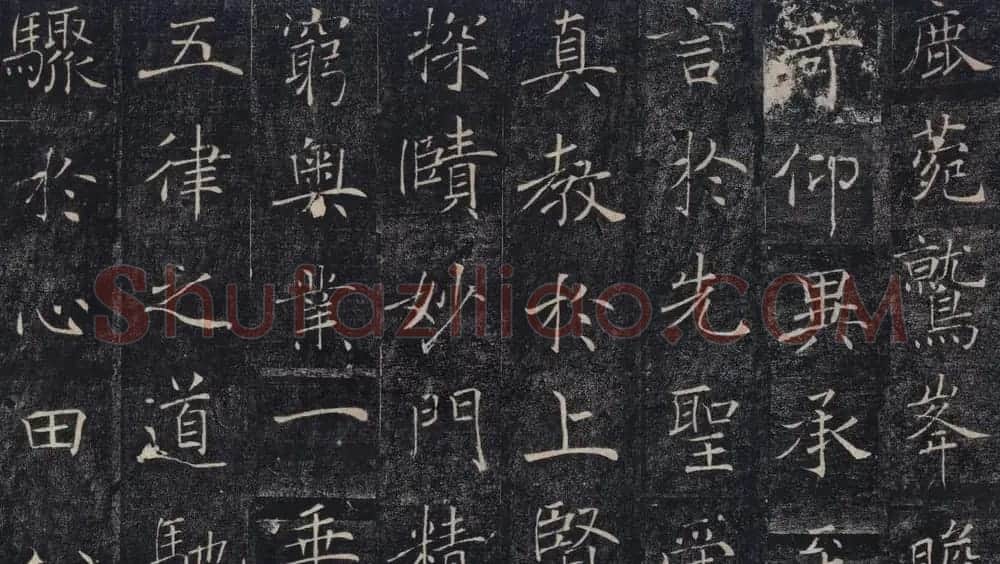 鹿菀鷲峯瞻
奇仰異承至
言於先聖受
真教於上賢
探賾妙門精
窮奧業一乘
五律之道馳
驟於心田八
Shufaziliao.COM